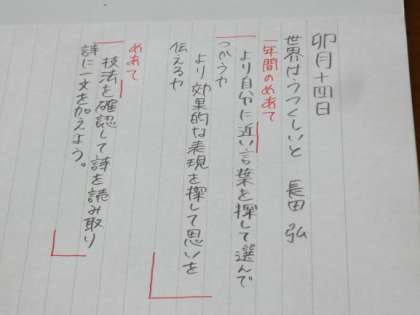 卯月十四日
世界はうつくしいと 長田 弘
一年間のめあて
より自分に近い言葉を探して選んで
つかうや
より効果的な表現を探して思いを
伝えるや
めあて
技法を確認して詩を読み取り
詩に一文を加えよう。